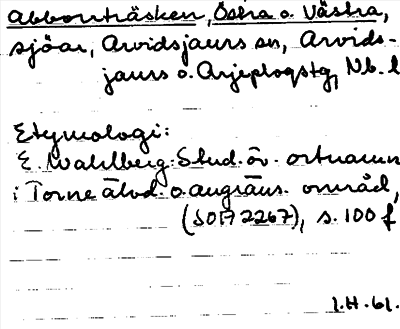 Abborrträsken, Östra o. Västra,
sjöar, Arvidsjaurs sn, Arvids-
jaurs o. Arjeplogstg, Nb. l
Etymologi:
E. Wahlberg: Stud. öv. ortnamn
i Torne älvd. o. angräns. områd,
(SOA 2267), s. 100 f
1.H.61.